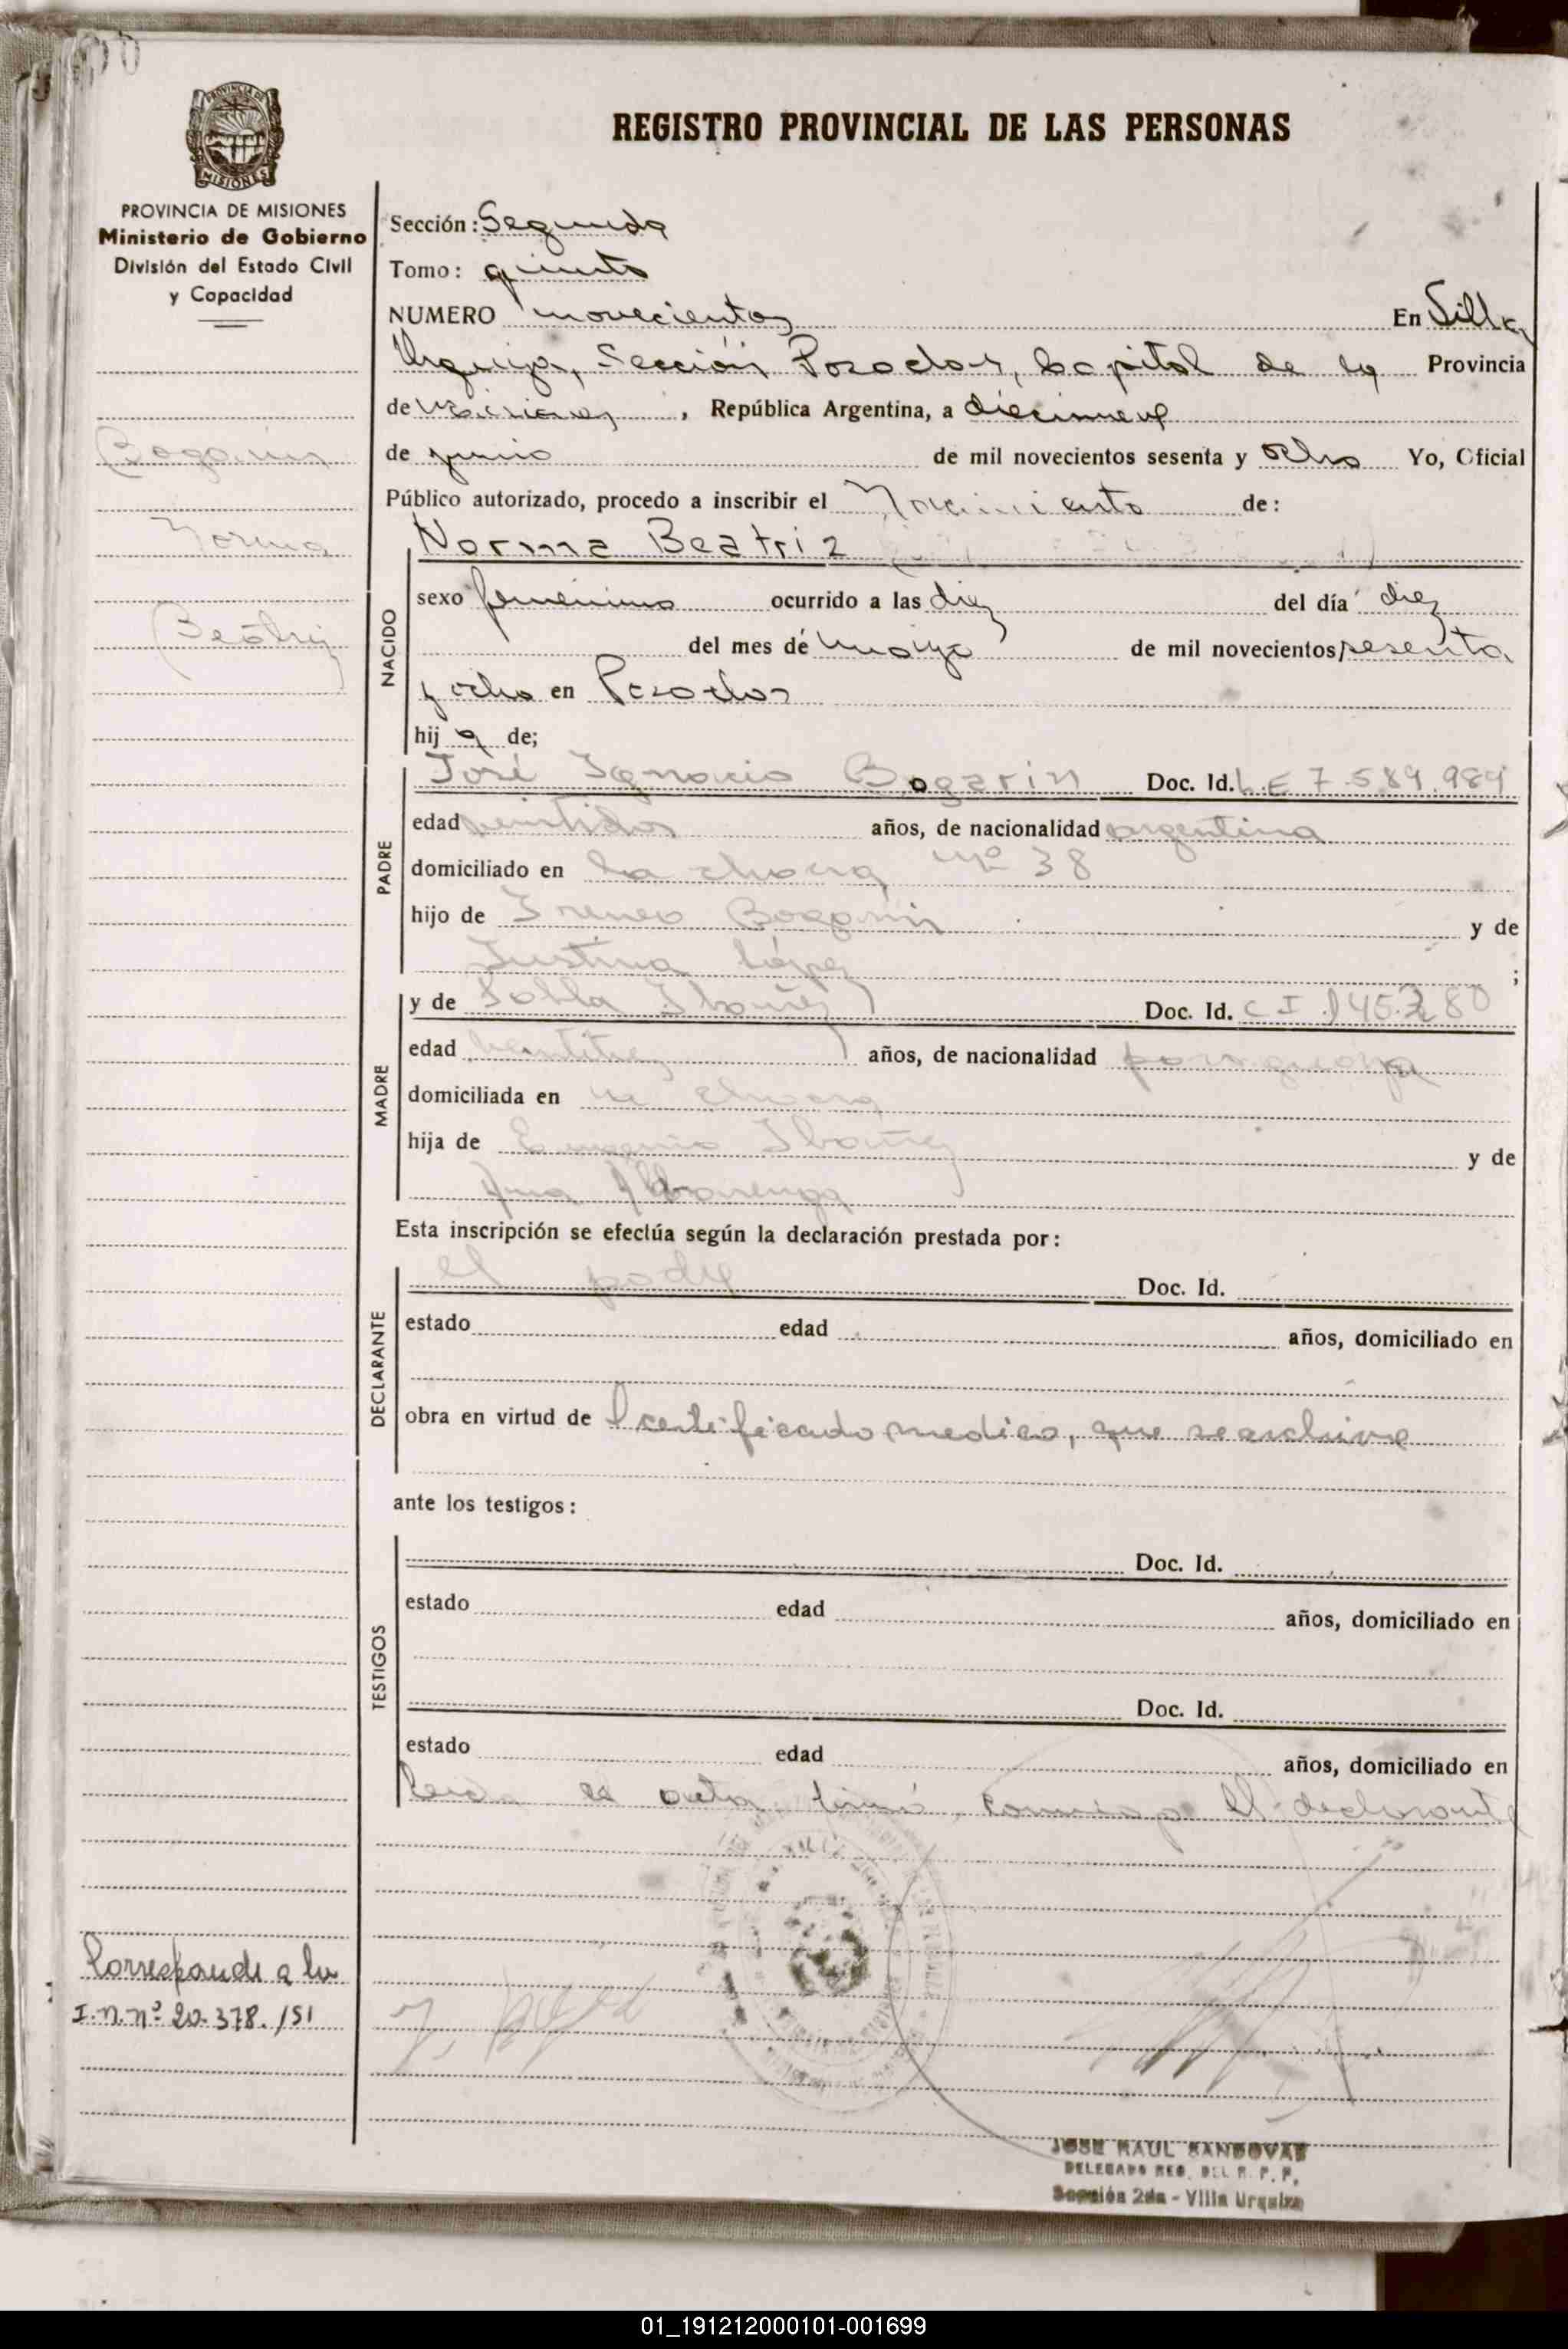 REGISTRO PROVINCIAL DE LAS PERSONAS
PROVINCIA DE MISIONES
Ministerio de Gobierno
División del Estado Civil
y Capacidad
Bogarin
Norma
Beatriz
Sección: Segunda
Tomo: quinto
NUMERO novecientos En Villa
Urquiza, Sección Posadas, Capital de la Provincia
de Misiones, República Argentina, a diecinueve
de junio de mil novecientos sesenta y ocho Yo, Oficial
Público autorizado, procedo a inscribir el Nacimiento de:
Norma Beatriz
NACIDO
sexo femenino ocurrido a las diez del día diez
del mes de mayo de mil novecientos sesenta
y ocho en Posadas
hija de;
PADRE
José Ignacio Bogarin Doc. Id. L.E 7.589.984
edad veintidos años, de nacionalidad argentina
domiciliado en la chacra nº 38
hijo de Ireneo Bogarin y de
Justina López ;
MADRE
y de Ibañez Doc. Id. C I 145.280
edad veintitrez años, de nacionalidad paraguaya
domiciliada en la chacra
hija de Eugenio Ibañez y de
Ana Albarenga
Esta inscripción se efectúa según la declaración prestada por:
DECLARANTE
el padre Doc. Id.
estado edad años, domiciliado en
obra en virtud de certificado medico, que se archiva
ante los testigos:
TESTIGOS
Doc. Id.
estado edad años, domiciliado en
Doc. Id.
estado edad años, domiciliado en
Leida el acta, firmó conmigo el declarante
Corresponde a la
I.N.Nº 20.378./51
JOSE RAUL SANDOVAL
DELEGADO REG. DEL R. P. P.
Sección 2da - Villa Urquiza
01_191212000101-001699